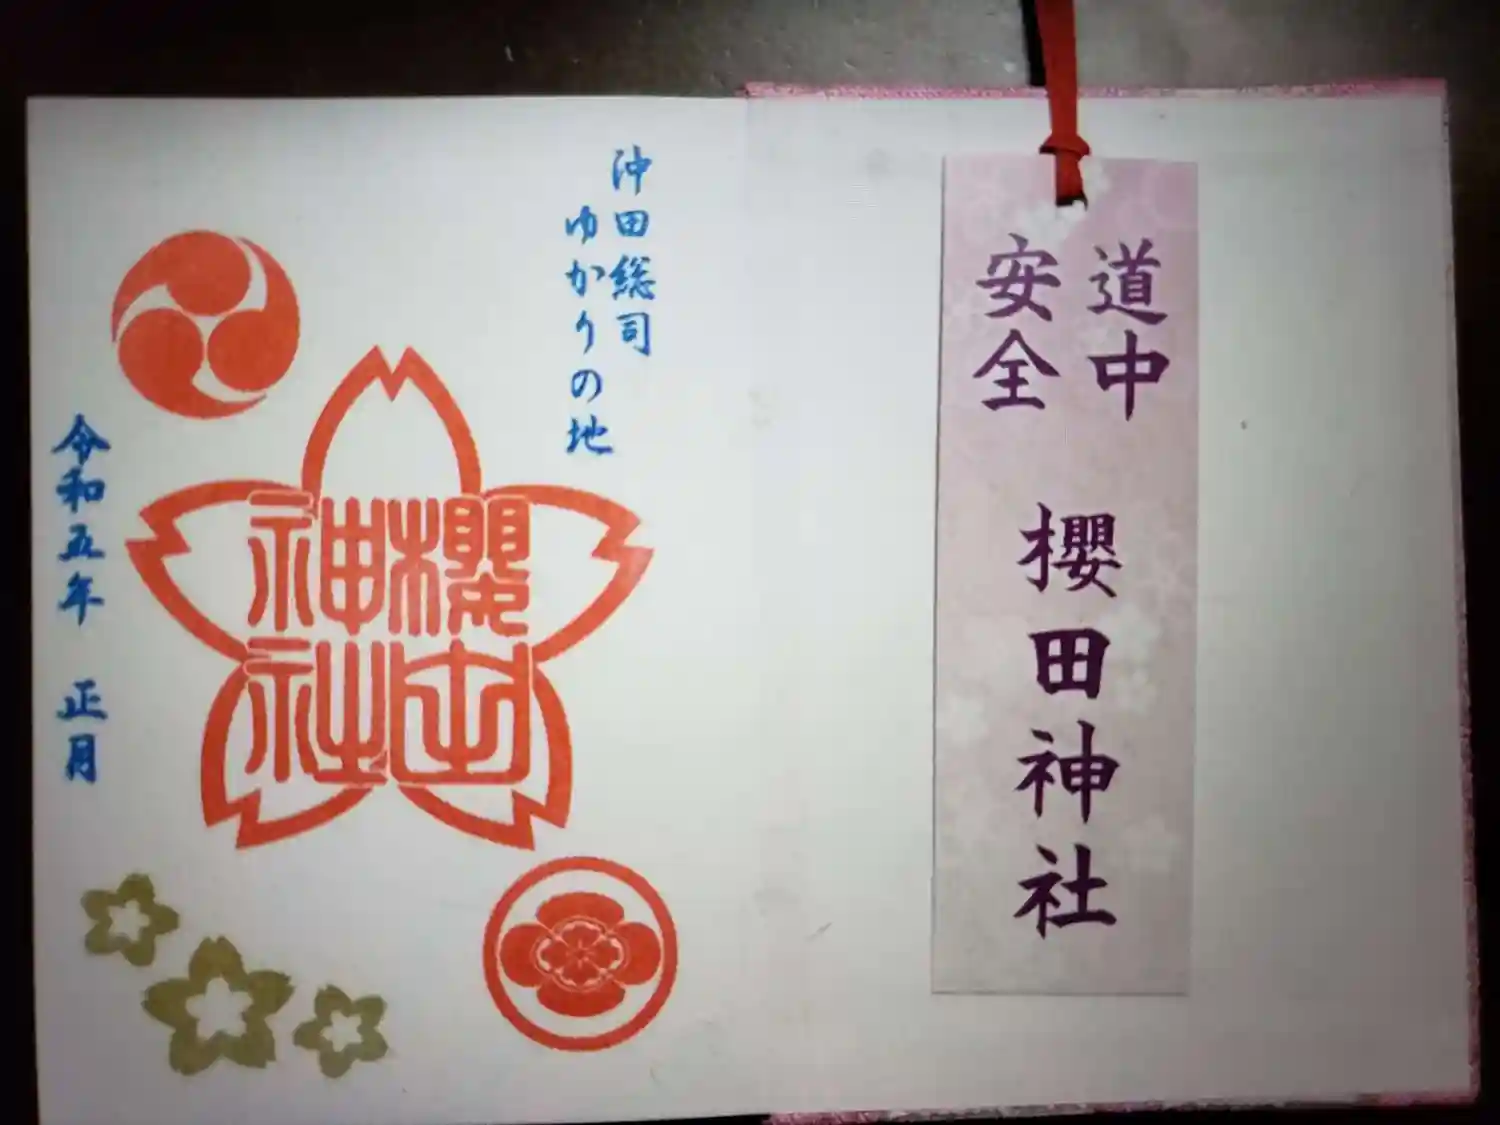 道中
安全
櫻田神社
沖田総司
ゆかりの地
櫻田
神社
令和五年 正月